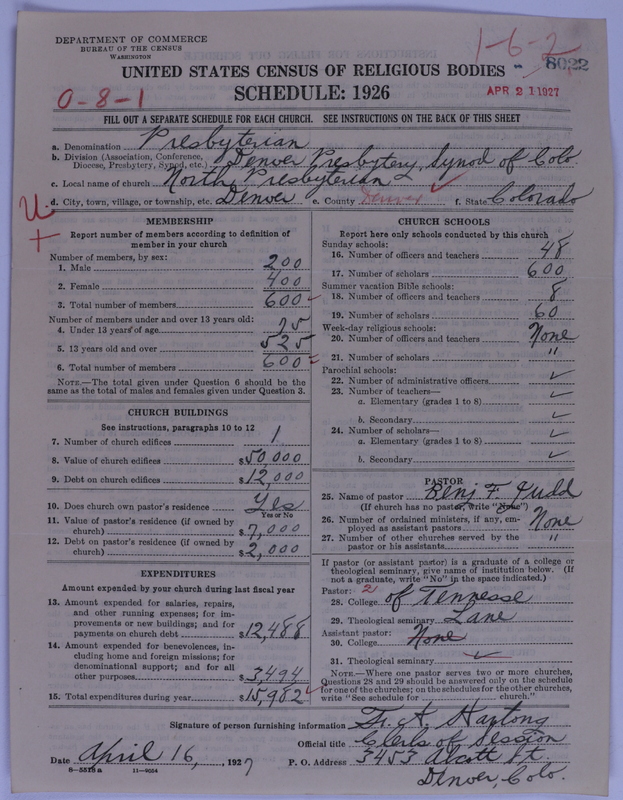 DEPARTMENT OF COMMERCE
BUREAU OF THE CENSUS
WASHINGTON
1-6-2
8022
UNITED STATES CENSUS OF RELIGIOUS BODIES
SCHEDULE: 1926
0-8-1
APR 21 1927
FILL OUT A SEPARATE SCHEDULE FOR EACH CHURCH. SEE INSTRUCTIONS ON THE BACK OF THIS SHEET
a. Denomination Presbyterian
b. Division (Association, Conference, Diocese, Presbytery, Synod, etc.) Denver Presbytery, Synod of Colo.
c. Local name of church North Presbyterian
d. City, town, village, or township, etc. Denver e. County Denver f. State Colorado
MEMBERSHIP
Report number of members according to definition of
member in your church
Number of members, by sex:
1. Male 200
2. Female 400
3. Total number of members 600
Number of members under and over 13 years old:
4. Under 13 years of age 75
5. 13 years old and over 525
6. Total number of members 600
NOTE.—The total given under Question 6 should be the
same as the total of males and females given under Question 3.
CHURCH BUILDINGS
See instructions, paragraphs 10 to 12
7. Number of church edifices 1
8. Value of church edifices $50,000
9. Debt on church edifices $12,000
10. Does church own pastor's residence Yes
Yes or No
11. Value of pastor's residence (if owned by
church) $7,000
12. Debt on pastor's residence (if owned by
church) $2,000
EXPENDITURES
Amount expended by your church during last fiscal year
13. Amount expended for salaries, repairs,
and other running expenses; for im-
provements or new buildings; and for
payments on church debt $12,488
14. Amount expended for benevolences, in-
cluding home and foreign missions; for
denominational support; and for all
other purposes $3,494
15. Total expenditures during year $15,982
CHURCH SCHOOLS
Report here only schools conducted by this church
Sunday schools:
16. Number of officers and teachers 48
17. Number of scholars 600
Summer vacation Bible schools:
18. Number of officers and teachers 8
19. Number of scholars 60
Week-day religious schools:
20. Number of officers and teachers None
21. Number of scholars "
Parochial schools:
22. Number of administrative officers ✓
23. Number of teachers—
a. Elementary (grades 1 to 8) ✓
b. Secondary ✓
24. Number of scholars—
a. Elementary (grades 1 to 8) ✓
b. Secondary ✓
PASTOR
25. Name of pastor Benj F. Judd
(If church has no pastor, write "None")
26. Number of ordained ministers, if any, em-
ployed as assistant pastors None
27. Number of other churches served by the
pastor or his assistants "
If pastor (or assistant pastor) is a graduate of a college or
theological seminary, give name of institution below. (If
not a graduate, write "No" in the space indicated.)
Pastor: 2
28. College of Tennesse
29. Theological seminary Lane
Assistant pastor:
30. College None
31. Theological seminary ✓
NOTE.—Where one pastor serves two or more churches,
Questions 28 and 29 should be answered only on the schedule
for one of the churches; on the schedules for the other churches,
write "See schedule for church."
Signature of person furnishing information Fr. A. Hartong
Official title Clerk of Session
Date April 16, 1927 P. O. Address 3453 Alcott St.
Denver, Colo.
8—5518a 11—9054